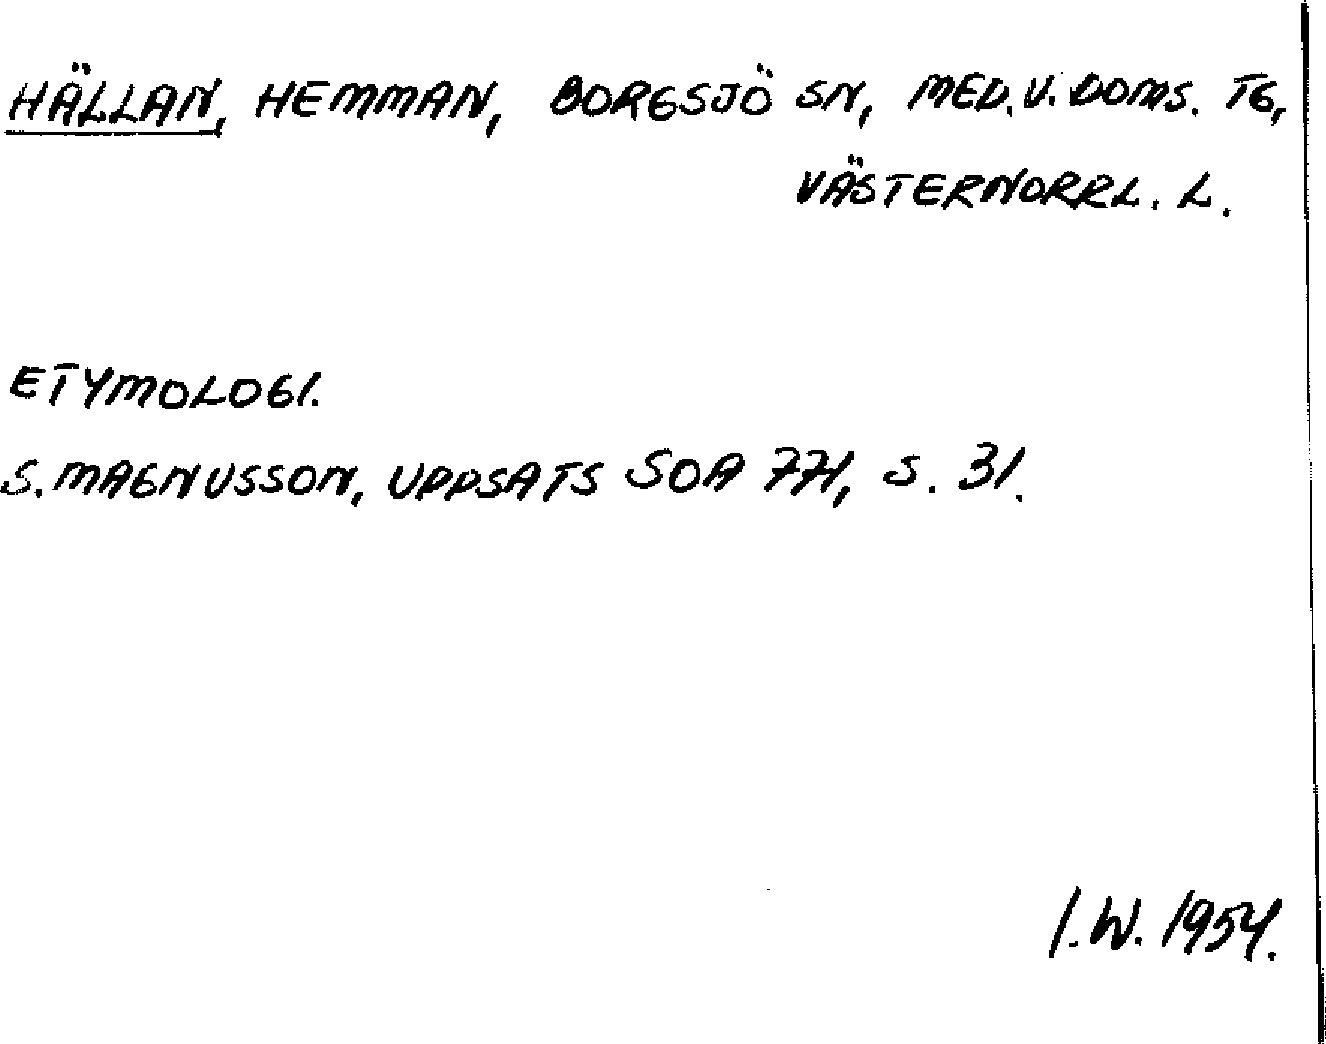 HÄLLAN, HEMMAN, BORGSJÖ SN, MED. V. DOMS. TG,
VÄSTERNORRL. L.
ETYMOLOGI.
S. MAGNUSSON, UPPSATS SOA 771, S. 31.
I. W. 1954.